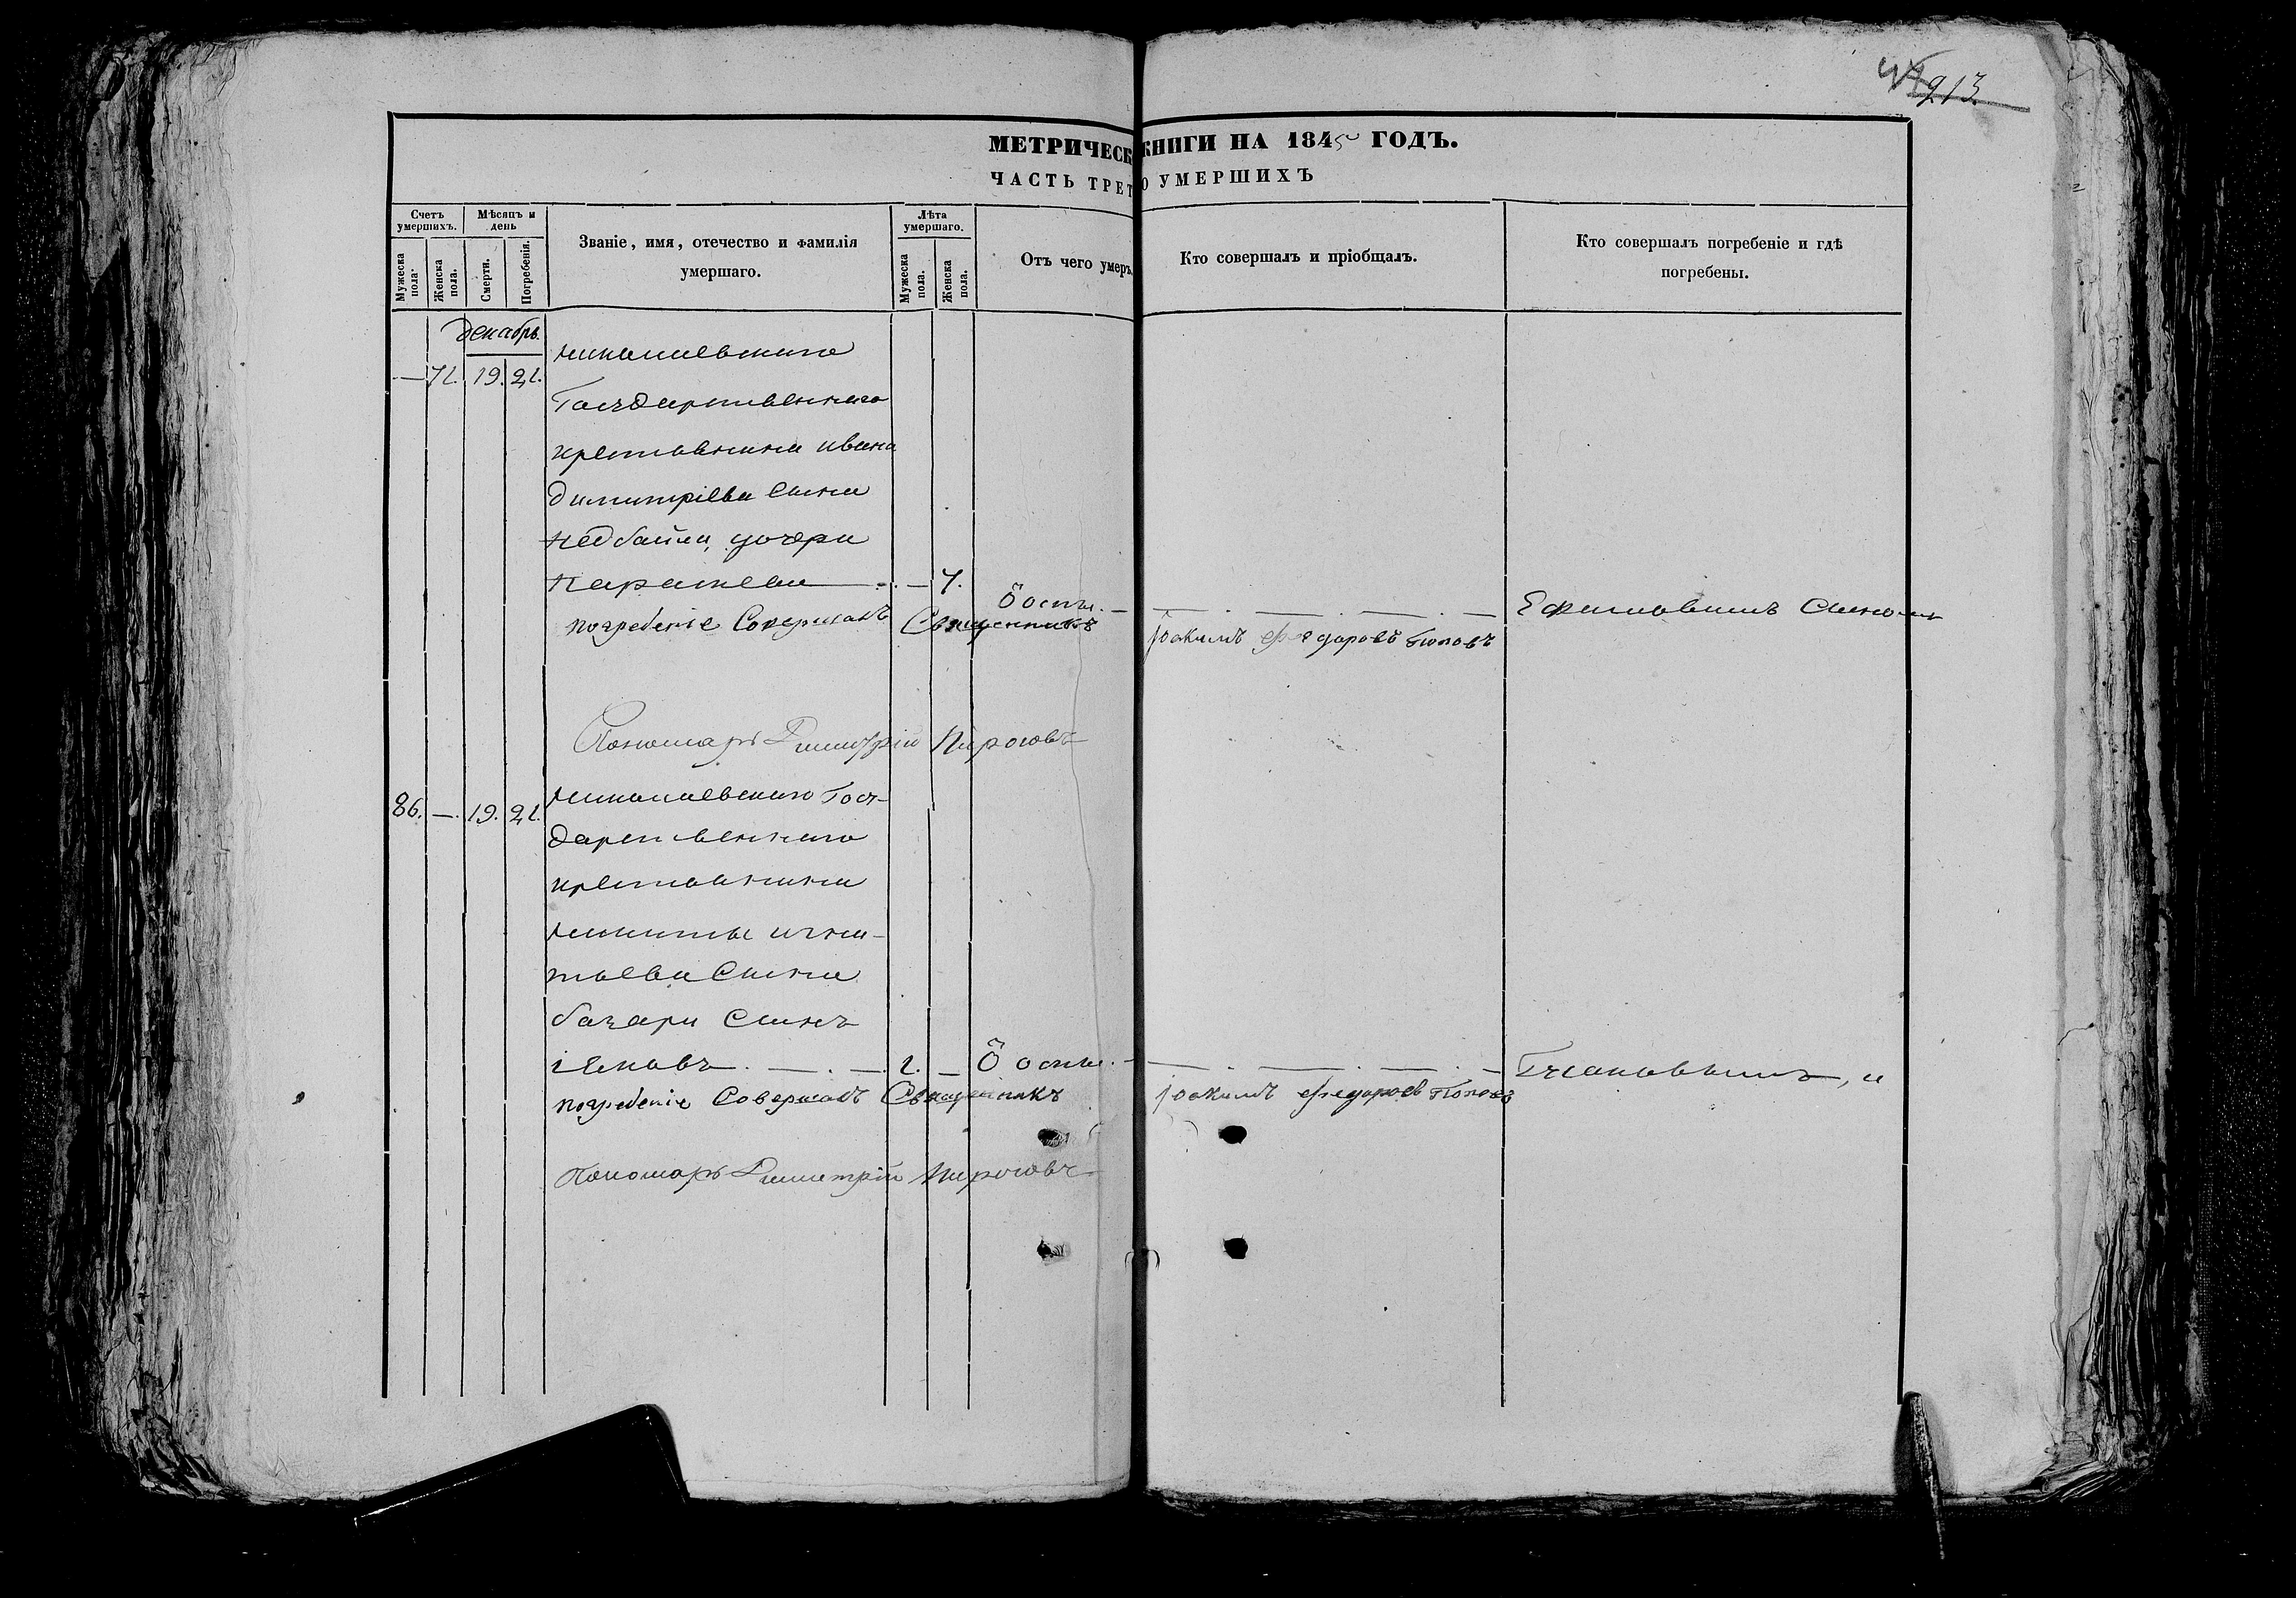 913
МЕТРИЧЕСК КНИГИ НА 1845 ГОДЪ.
ЧАСТЬ ТРЕТ О УМЕРШИХЪ
Счетъ умершихъ.
Мужеска пола.
Женска пола.
Мѣсяцъ и день
Смерти.
Погребенія.
Званіе, имя, отечество и фамилія
умершаго.
Лѣта умершаго.
Мужеска пола.
Женска пола.
Отъ чего умеръ.
Кто совершалъ и пріобщалъ.
Кто совершалъ погребеніе и гдѣ
погребены.
Декабрь.
— 71. 19. 21.
николаевскаго
Государственнаго
крестьянина ивана
димитріева сына
недбайла, дочери
параскева — 7. Ѿ оспы. — Ефимовымъ Сыномъ
погребеніе Совершалъ Священникъ Іоакимъ Федоровъ Поповъ
Пономарь Димитрій Пироговъ
86. — 19. 21. николаевскаго Госу-
дарственнаго
крестьянина
никиты игна-
тьева Сына
базари Сынъ
іяковъ. — 2. — Ѿ оспы. —
погребеніе Совершалъ Священникъ Іоакимъ Федоровъ Поповъ
Пономарь Димитрій Пироговъ